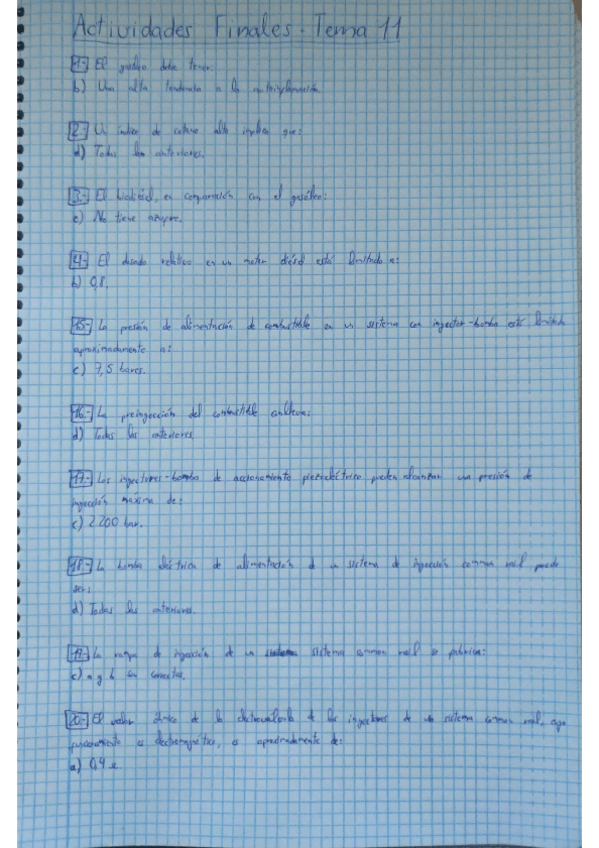 Actividades Finales - Tema 11
1.- El gasóleo debe tener:
b) Una alta tendencia a la autoinflamación.
2.- Un índice de cetano alto implica que:
d) Todas las anteriores.
3.- El biodiésel, en comparación con el gasóleo:
c) No tiene azufre.
4.- El dosado relativo en un motor diésel está limitado a:
b) 0,8.
15.- La presión de alimentación de combustible en un sistema con inyector-bomba está limitada
aproximadamente a:
c) 7,5 bares.
16.- La preinyección del combustible conlleva:
d) Todas las anteriores.
17.- Los inyectores-bomba de accionamiento piezoeléctrico pueden alcanzar una presión de
inyección máxima de:
c) 2.200 bar.
18.- La bomba eléctrica de alimentación de un sistema de inyección common rail puede
ser:
d) Todas las anteriores.
19.- La rampa de inyección de un sistema common rail se fabrica:
c) a y b son correctas.
20.- El valor óhmico de la electroválvula de los inyectores de un sistema common rail, cuyo
funcionamiento es electromagnético, es aproximadamente de:
a) 0,4